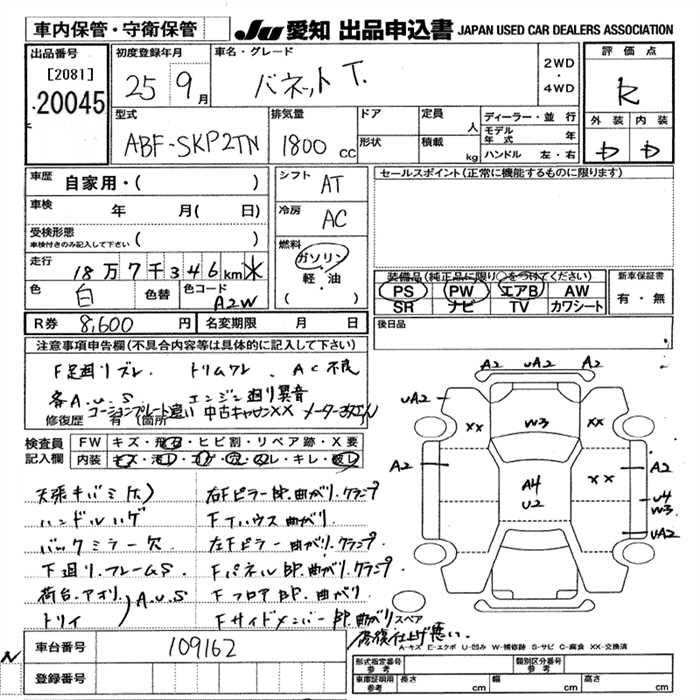 車内保管・守衛保管
JU 愛知 出品申込書 JAPAN USED CAR DEALERS ASSOCIATION
出品番号
[2081]
20045
初度登録年月
25 9月
車名・グレード
バネットT.
2WD
・
4WD
評価点
R
外装 内装
型式
ABF-SKP2TN
排気量
1800 cc
ドア
形状
定員
人
積載
kg
ディーラー・並行
モデル年式 年
ハンドル 左・右
車歴
自家用・( )
車検
年 月( 日)
受検形態
車検付きのみ記入して下さい ( )
走行
18万7千346km
色
白
色替
色コード
A2W
シフト
AT
冷房
AC
燃料
ガソリン
軽・油
( )
セールスポイント(正常に機能するものに限ります)
装備品(純正品に限り○をつけてください)
PS PW エアB AW
SR ナビ TV カワシート
新車保証書
有・無
R券 8,600 円 名変期限 月 日
後日品
注意事項申告欄(不具合内容等は具体的に記入して下さい)
F足廻リズレ トリムワレ AC不良
各A.U.S エンジン廻り異音
コーションプレート違い 中古キャウンXX
修復歴 有 (箇所
検査員
記入欄
FW キズ・飛石・ヒビ割・リペア跡・X要
内装 キズ・汚レ・コゲ・穴・スレ・キレ・破レ
天張キバミ(大)
ハンドルハゲ
バックミラー欠
下廻リ.フレームS
荷台.アオリ
トリイ
A.U.S
右Fピラー卩.曲がり.クランプ
Fインハウス曲がり.
左Fピラー曲がり.クランプ
Fパネル卩.曲がり.クランプ
Fフロア卩.曲がり
Fサイドメンバー卩.曲がり
修復仕上げ悪い.
A2 uA2 A2
uA2 A2
XX W3 XX
A2 A2
XX
A4
U2
U4
W3
uA2
スペア
A-キズ E-エクボ U-凹み W-補修跡 S-サビ C-腐食 XX-交換済
車台番号 109162
登録番号
形式指定番号
参考
類別区分番号
参考
車庫証明用
参考
長さ cm 幅 cm 高さ cm